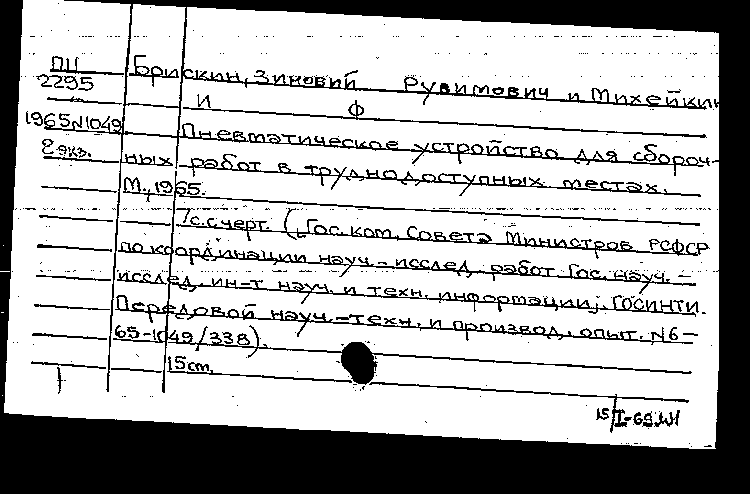 ПЦ
2295
1965 N1049
2 экз.
Брискин, Зиновий Рувимович и Михейкин
И Ф
Пневматическое устройство для сбороч-
ных работ в труднодоступных местах.
М., 1965.
7с. с черт. (Гос. ком. Совета Министров РСФСР
по координации науч.-исслед. работ. Гос. науч.-
исслед. ин-т науч. и техн. информации; ГОСИНТИ.
Передовой науч.-техн. и производ. опыт. N6-
65-1049/338).
15 cm.
15/I-69